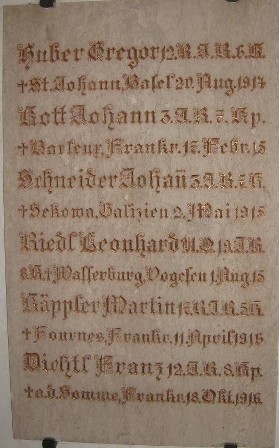 Huber Gregor 12. R. I. R. 6. K.
† St. Johann, Basel 20. Aug. 1914
Kott Johann 3. I. R. 7. Kp.
† Barleux, Frankr. 17. Febr. 15
Schneider Johan̄ 3. I. R. 7. K
† Sekowa, Galizien 2. Mai 1915
Riedl Leonhard U. O. 19. I. R.
8. K † Wasserburg, Vogesen 1. Aug. 15
Käppler Martin 17. R. I. R. 5. K.
† Fournes, Frankr. 11. April 1916
Diehtl Franz 12. I. R. 8. Kp.
† a.d. Somme, Frankr. 18. Okt. 1916